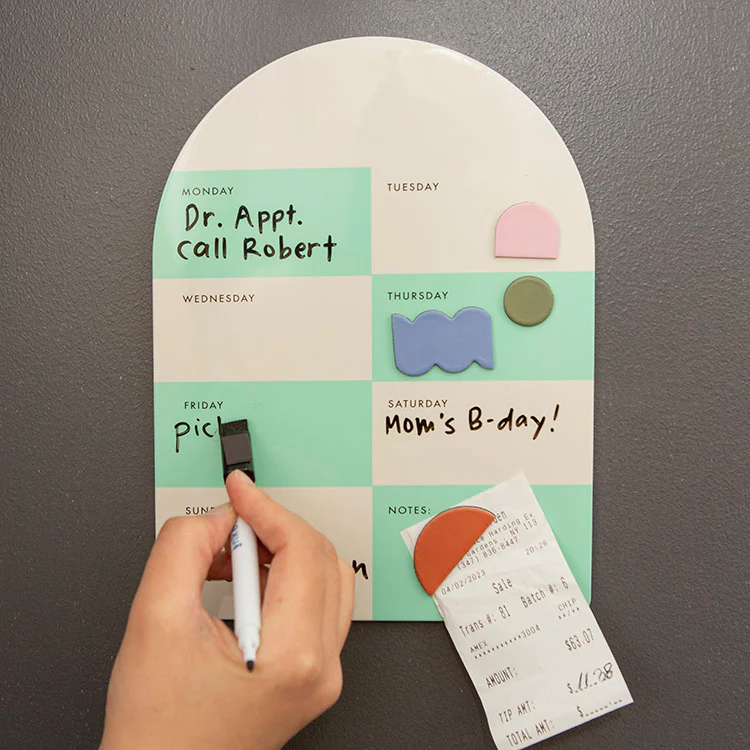 MONDAY
Dr. Appt.
Call Robert
TUESDAY
WEDNESDAY
THURSDAY
FRIDAY
pic
SATURDAY
Mom's B-day!
NOTES:
Harding Ex
Gardens NY 113
(347) 836-8447
04/02/2023 20:26
Sale
Trans #: 81 Batch #: 6
AMEX CHIP
************3004 **/**
AMOUNT: $63.07
TIP AMT: $ 11.28
TOTAL AMT: $